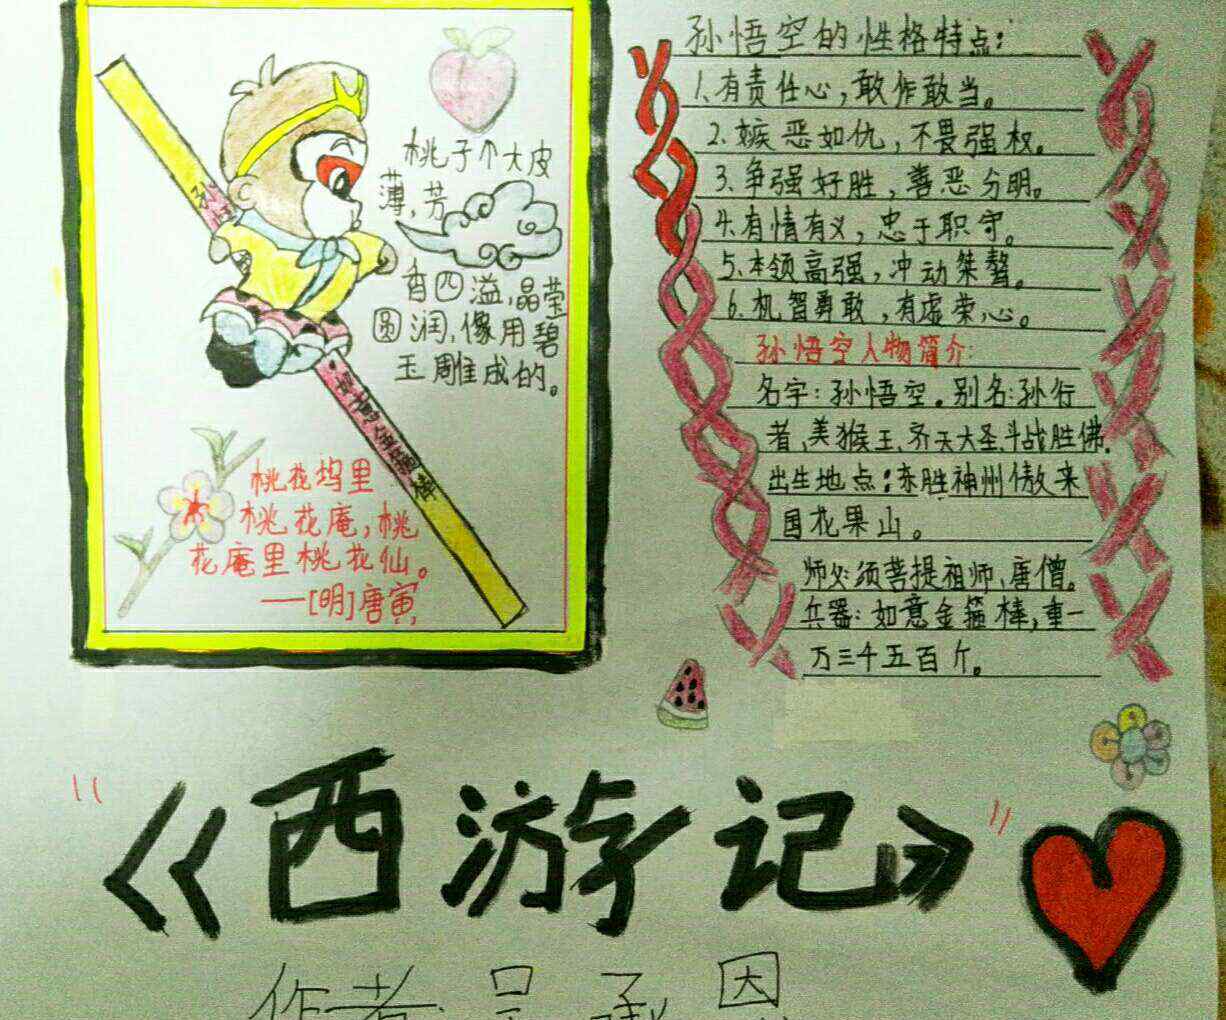 桃子个大皮
薄,芳
香四溢,晶莹
圆润,像用碧
玉雕成的。
桃花坞里
桃花庵,桃
花庵里桃花仙。
——[明]唐寅
孙悟空的性格特点:
1、有责任心,敢作敢当。
2、嫉恶如仇,不畏强权。
3、争强好胜,善恶分明。
4、有情有义,忠于职守。
5、本领高强,冲动桀骜。
6、机智勇敢,有虚荣心。
孙悟空人物简介
名字:孙悟空。别名:孙行
者、美猴王、齐天大圣、斗战胜佛。
出生地点:东胜神州傲来
国花果山。
师父:须菩提祖师、唐僧。
兵器:如意金箍棒,重一
万三千五百斤。
"《西游记》"
作者 吴承恩